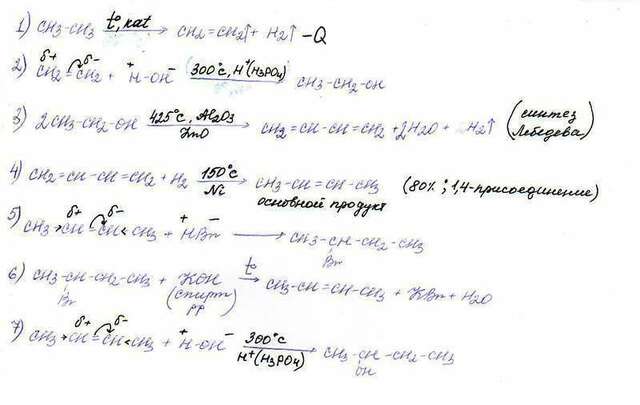 1) CH3-CH3 t°, kat → CH2=CH2↑ + H2↑ -Q
2) CH2=CH2 + H-OH 300°C, H⁺(H3PO4) → CH3-CH2-OH
δ+ δ- + -
3) 2CH3-CH2-OH 425°C, Al2O3 ZnO → CH2=CH-CH=CH2 + 2H2O + H2↑ (синтез Лебедева)
4) CH2=CH-CH=CH2 + H2 150°C Ni → CH3-CH=CH-CH3 (80%; 1,4-присоединение)
основной продукт
5) CH3→CH=CH←CH3 + HBr → CH3-CH-CH2-CH3
δ+ δ- + -
Br
6) CH3-CH-CH2-CH3 + KOH t° → CH3-CH=CH-CH3 + KBr + H2O
Br (спирт. р-р)
7) CH3→CH=CH←CH3 + H-OH 300°C H⁺(H3PO4) → CH3-CH-CH2-CH3
δ+ δ- + -
OH